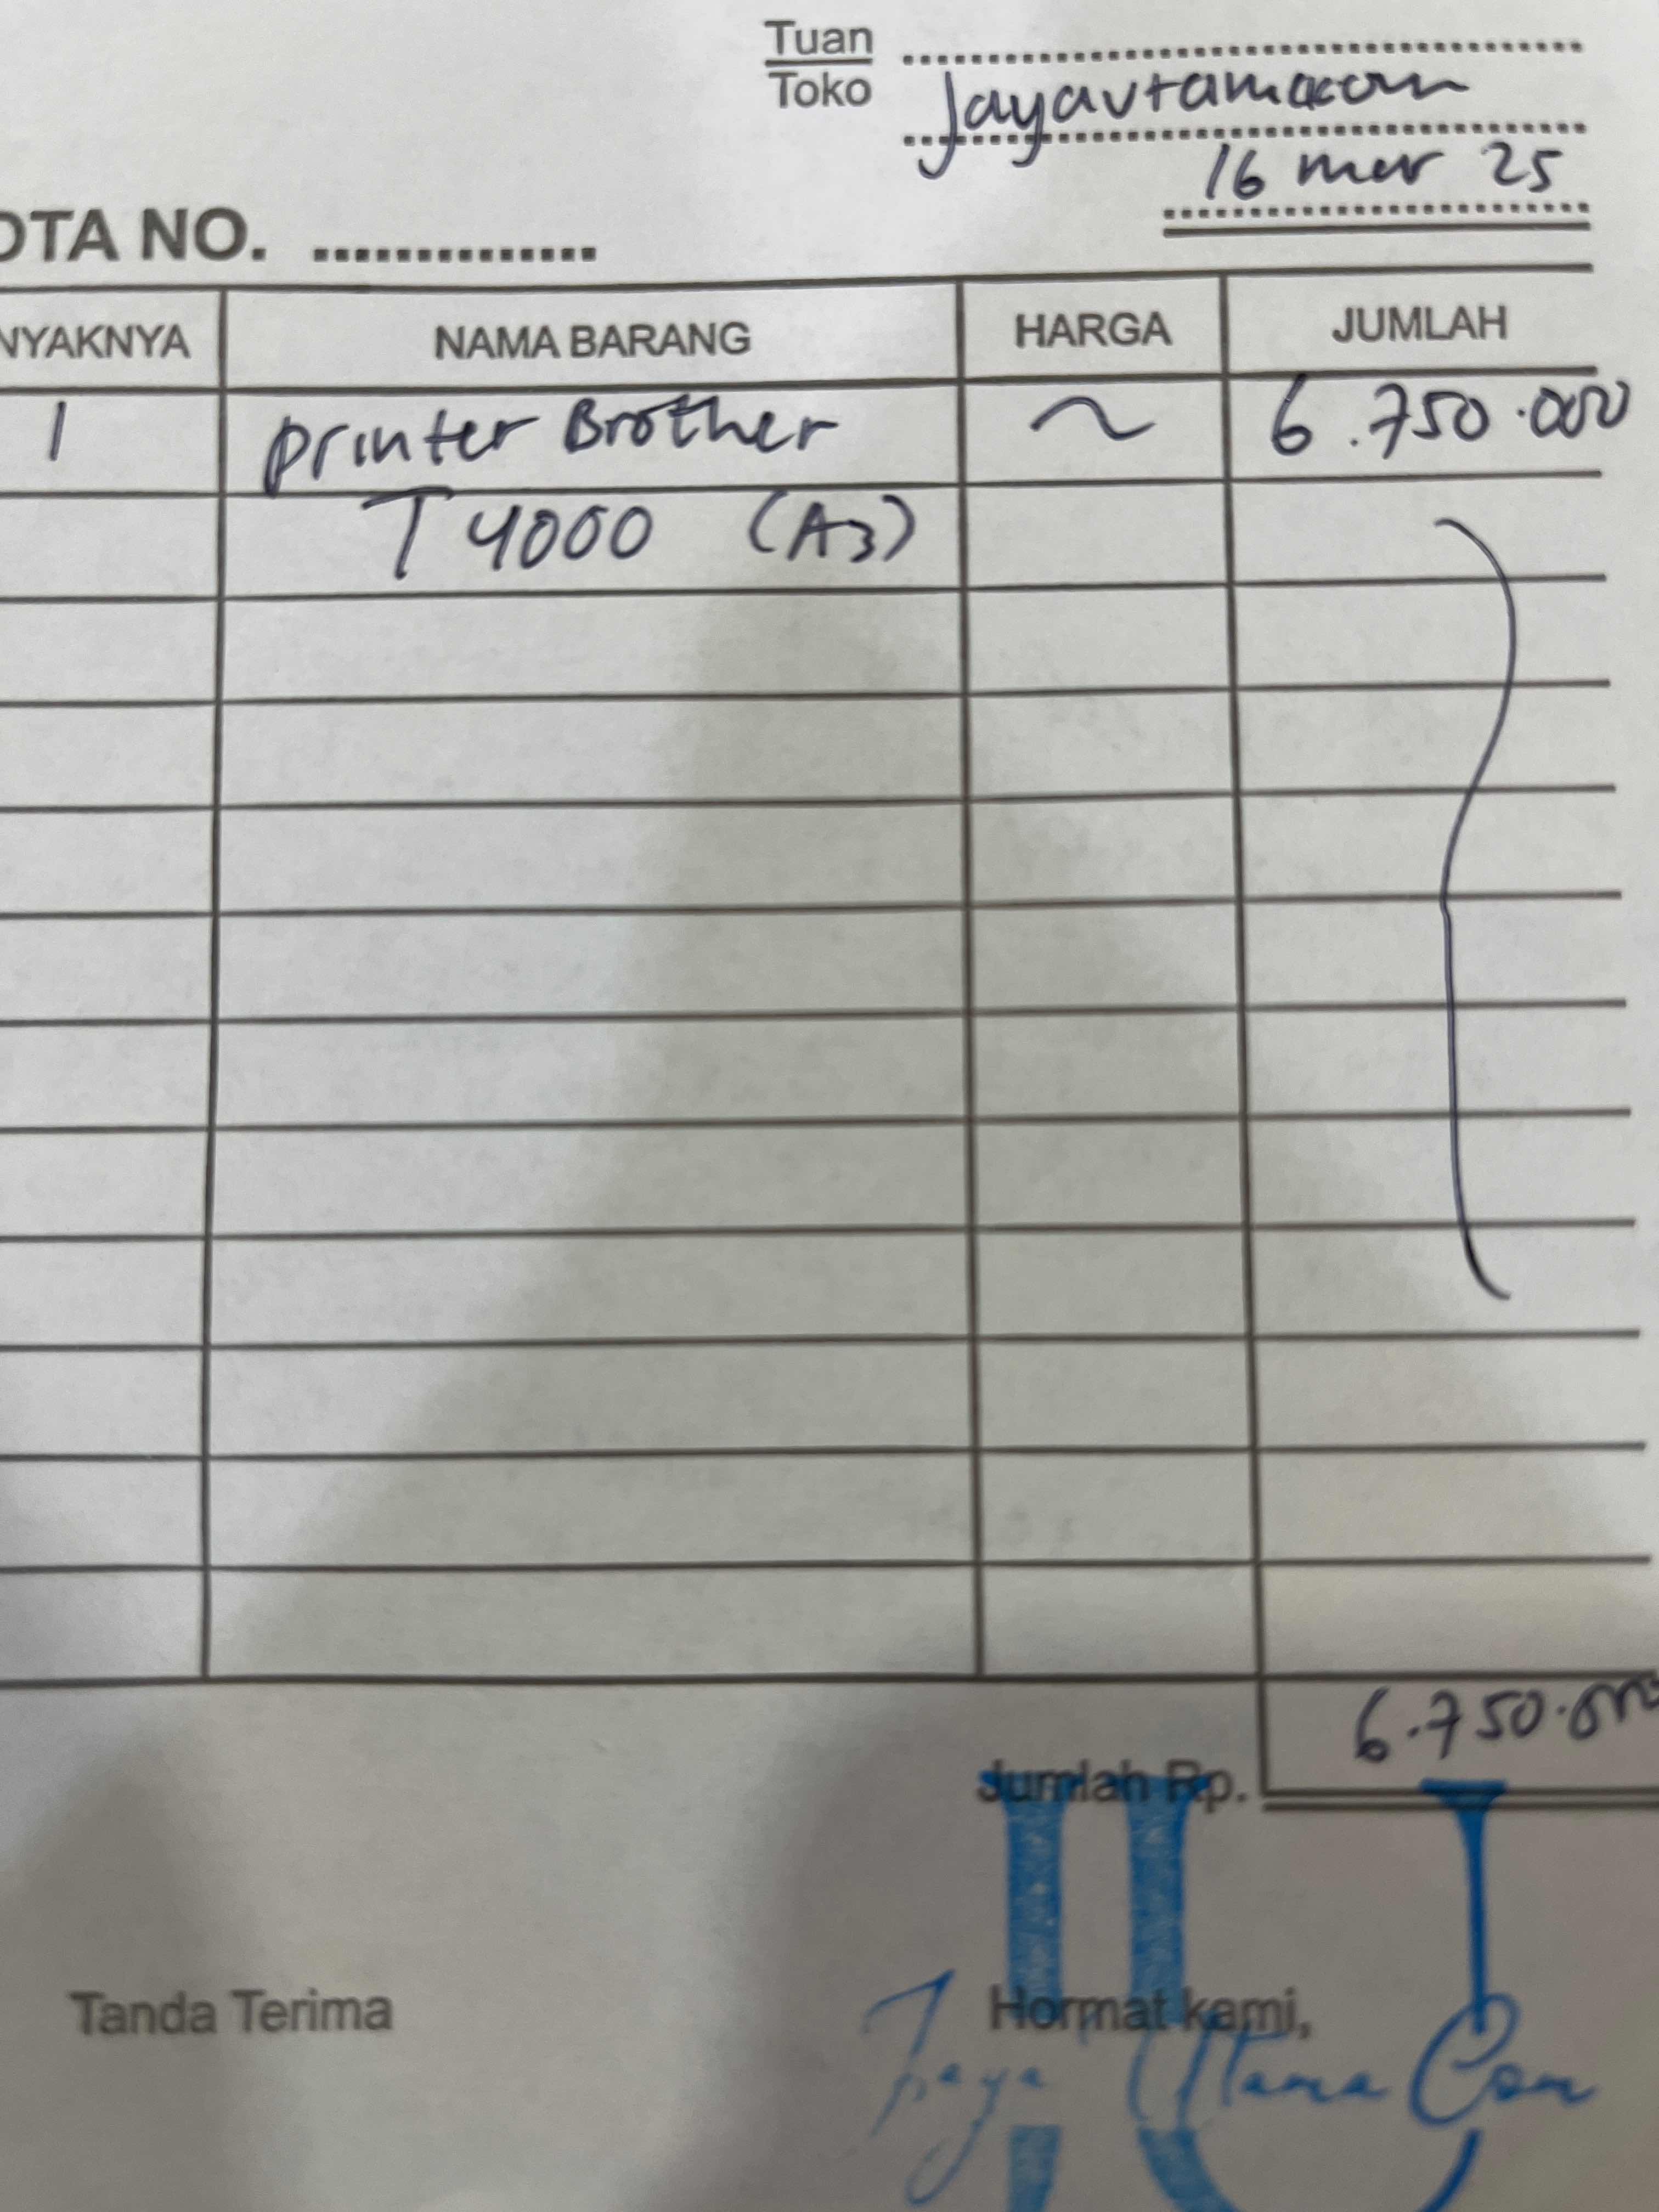 Tuan
Toko
Jayautamacom
16 mer 25
OTA NO. ..............
NYAKNYA NAMA BARANG HARGA JUMLAH
1 printer Brother ~ 6.750.000
T4000 (A3)
6.750.000
Jumlah Rp.
Tanda Terima Hormat kami,
Jaya Utama Com